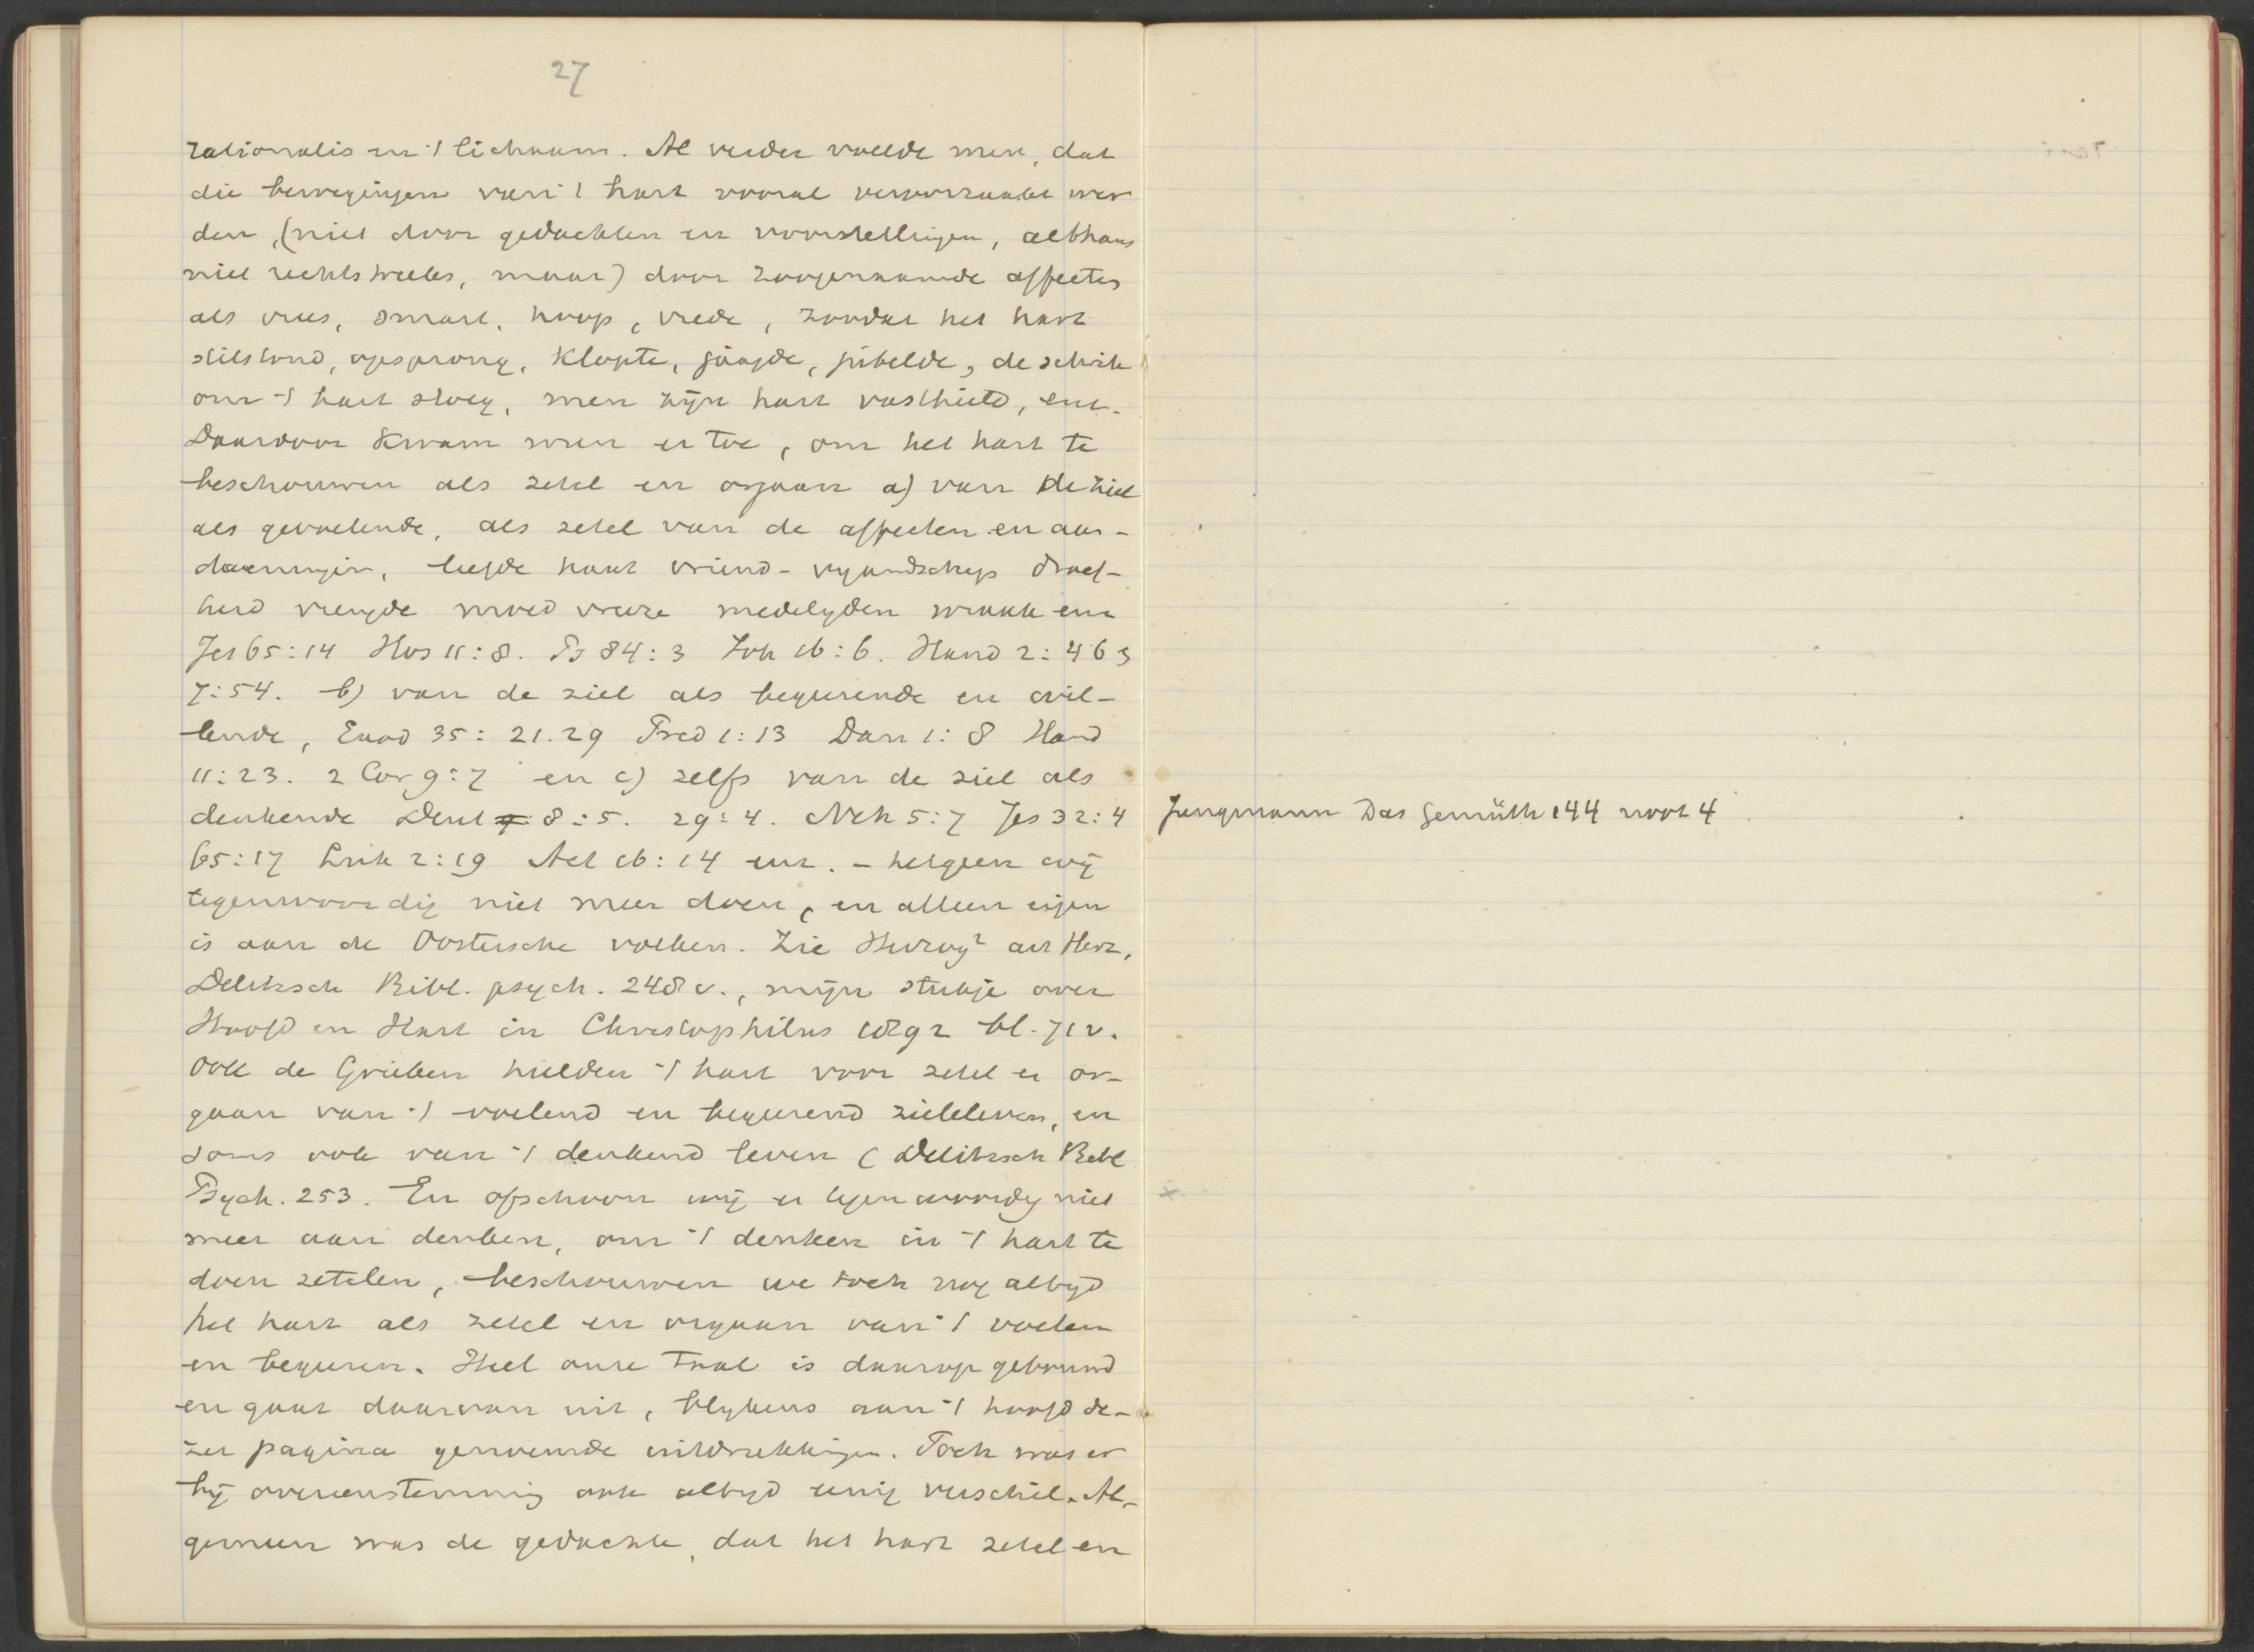 27
rationalis in 't lichaam. Al verder voelde men, dat
die bewegingen van 't hart vooral veroorzaakt wer
den, (niet door gedachten en voorstellingen, althans
niet rechtstreeks, maar) door zoogenaamde affectes
als vrees, smart, hoop, vrede, zoodat het hart
stilstond, opsprong, klopte, jaagde, jubelde, de schrik
om 't hart sloeg, men zijn hart vasthield, enz.
Daardoor kwam men er toe, om het hart te
beschouwen als zetel en orgaan a) van de ziel
als gevoelende, als zetel van de affecten en aan-
doeningen, liefde haat vriend- vyandschap droef-
heid vreugde moed vreeze medelyden wraak enz
Jes 65:14 Hos 11:8. Ps 84:3 Joh 16:6. Hand 2:46
7:54. b) van de ziel als begeerende en wil-
lende, Exod 35: 21.29 Pred 1:13 Dan 1:8 Hand
11:23. 2 Cor 9:7 en c) zelfs van de ziel als
denkende Deut 8:5. 29:4. Neh 5:7 Jes 32:4
65:17 Luk 2:19 Act 16:14 enz. - hetgeen wij
tegenwoordig niet meer doen, en alleen eigen
is aan de Oostersche volken. Zie Herzog² art Herz,
Delitzsch Bibl. psych. 248 v., mijn stukje over
Hoofd en Hart in Christophilus 1892 bl. 71v.
Ook de Grieken hielden 't hart voor zetel en or-
gaan van 't voelend en begeerend zieleleven, en
soms ook van 't denkend leven (Delitzsch Bibl
Psych. 253. En ofschoon wij er tegenwoordig niet
meer aan denken, om 't denken in 't hart te
doen zetelen, beschouwen we toch nog altyd
het hart als zetel en orgaan van 't voelen
en begeeren. Heel onze taal is daarop gebouwd
en gaat daarvan uit, blykens aan 't hoofd de-
zer pagina genoemde uitdrukkingen. Toch was er
bij overeenstemming ook altyd eenig verschil. Al-
gemeen was de gedachte, dat het hart zetel en
Jungmann Das Gemüth 144 noot 4